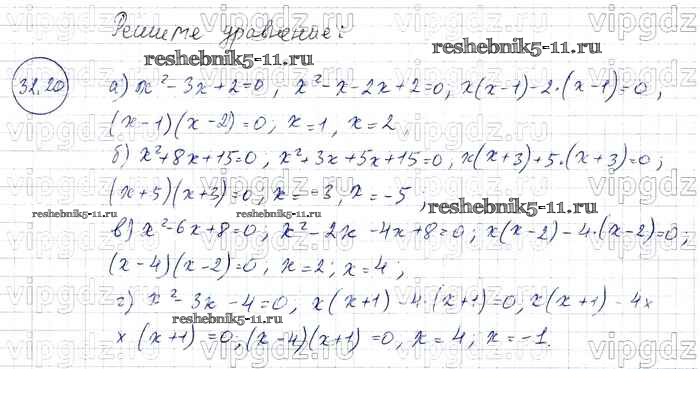 Решите уравнение:
reshebnik5-11.ru
reshebnik5-11.ru
32.20
а) x² - 3x + 2 = 0; x² - x - 2x + 2 = 0; x(x-1) - 2·(x-1) = 0;
(x-1)(x-2) = 0; x = 1, x = 2
б) x² + 8x + 15 = 0, x² + 3x + 5x + 15 = 0, x(x+3) + 5·(x+3) = 0;
(x+5)(x+3) = 0, x = -3, x = -5,
reshebnik5-11.ru
reshebnik5-11.ru
reshebnik5-11.ru
в) x² - 6x + 8 = 0; x² - 2x - 4x + 8 = 0; x(x-2) - 4·(x-2) = 0;
(x-4)(x-2) = 0, x = 2; x = 4;
г) x² - 3x - 4 = 0, x(x+1) - 4·(x+1) = 0, x(x+1) - 4×
reshebnik5-11.ru
×(x+1) = 0, (x-4)(x+1) = 0, x = 4; x = -1.
vipgdz vipgdz.ru vipgdz.ru